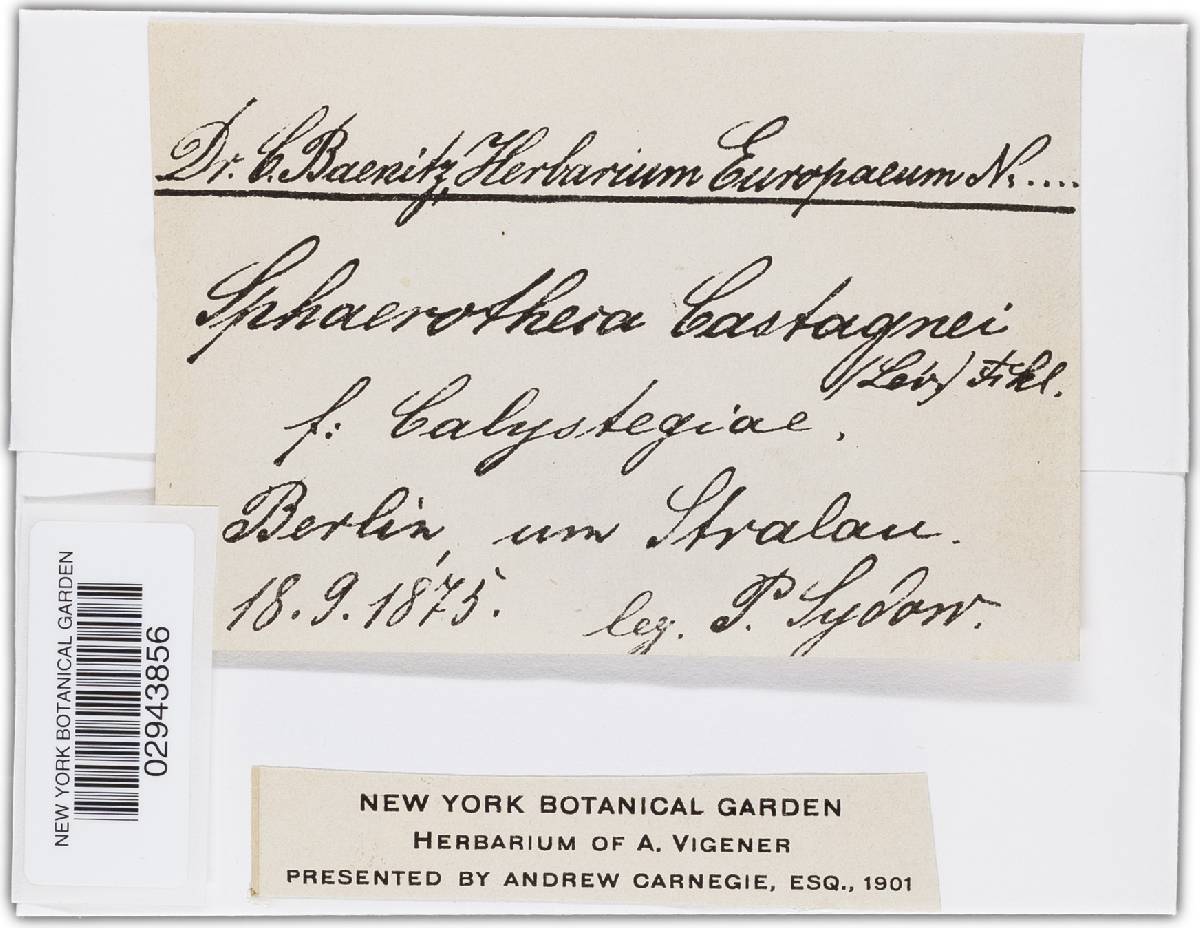 Dr. C. Baenitz, Herbarium Europaeum N. ....
Sphaerotheca Castagnei
(Lév) Fkl.
f: Calystegiae.
Berlin, um Stralau.
18.9.1875. leg. P. Sydow.
NEW YORK BOTANICAL GARDEN
02943856
NEW YORK BOTANICAL GARDEN
HERBARIUM OF A. VIGENER
PRESENTED BY ANDREW CARNEGIE, ESQ., 1901